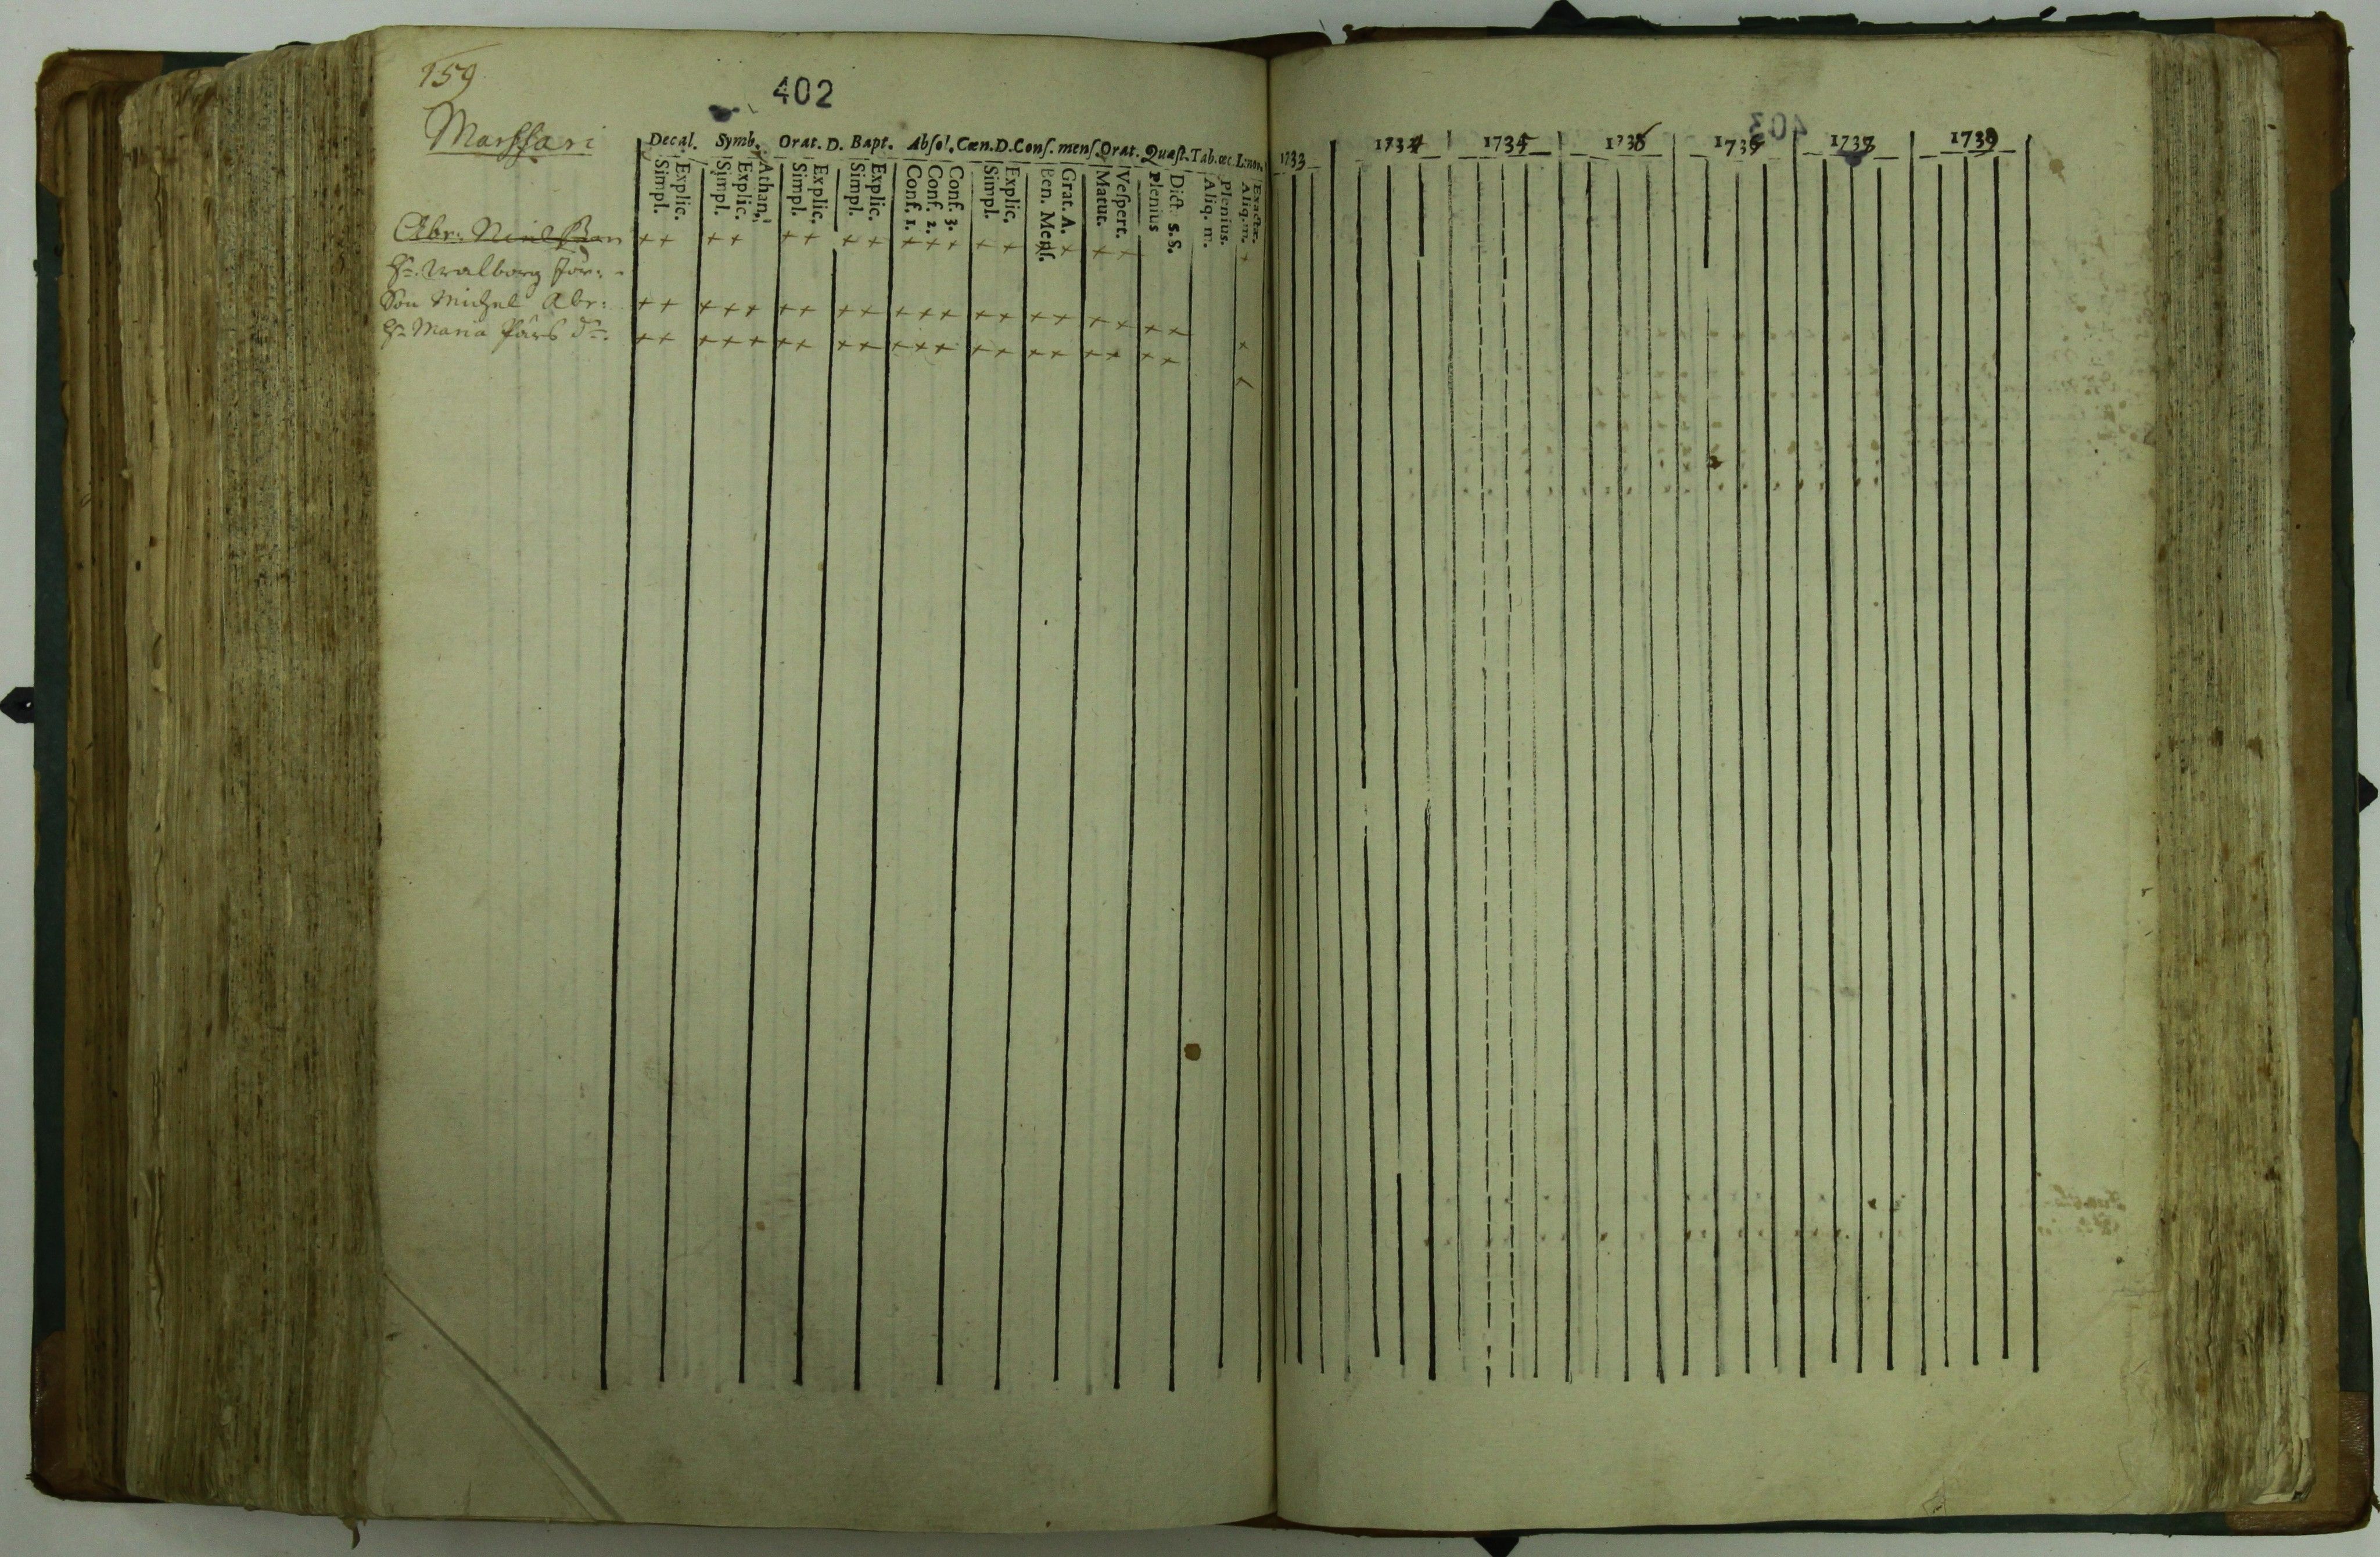 159
402
Marssari
Decal. Symb. Orat. D. Bapt. Abſol. Cœn. D. Conf. menſ. Orat. Quæſt. Tab. œc. 1733
Simpl. Explic. Simpl. Explic. Athan. Simpl. Explic. Simpl. Explic. Conf. 1. Conf. 2. Conf. 3. Simpl. Explic. Ben. Menſ. Grat. A. Matut. Veſpert. Plenius Dict. S. S. Aliq. m. Plenius. Aliq. m. Exactæ.
Abr: + + + + + + + + + + + + + + + + + +
Hu. Walborg Jör: -
Son Michel Abr: + + + + + + + + + + + + + + + + + + + + +
Hu Maria Pärs d: + + + + + + + + + + + + + + + + + + + + +
403
1734 1735 1738 1739